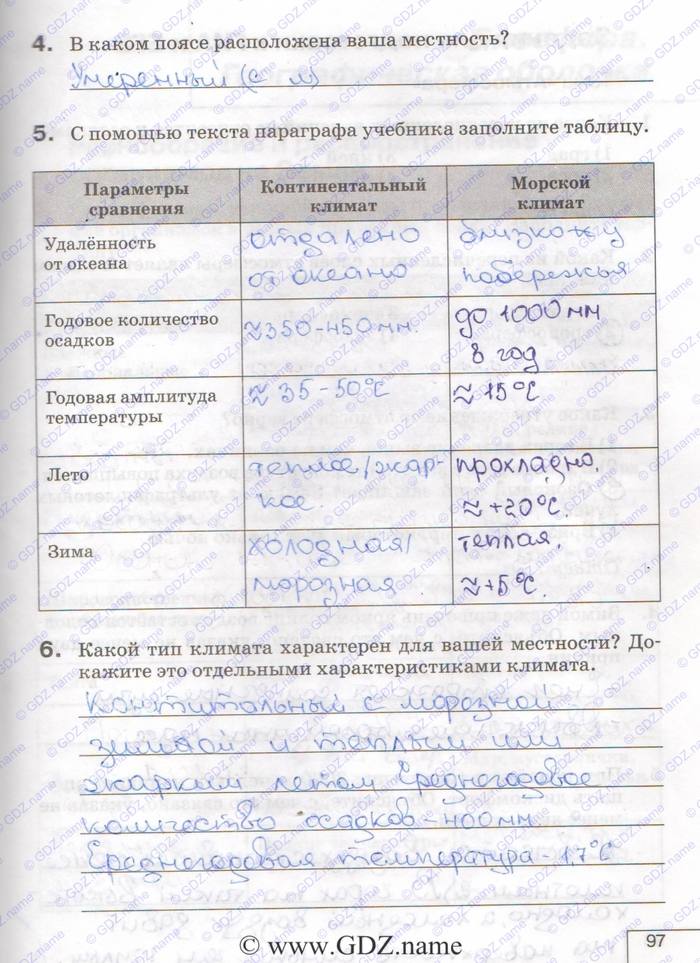 4. В каком поясе расположена ваша местность?
Умеренный (с м)
5. С помощью текста параграфа учебника заполните таблицу.
Параметры сравнения
Континентальный климат
Морской климат
Удалённость от океана
отдалено от океано
близко к у побережья
Годовое количество осадков
≈350-450 мм.
до 1000 мм в год
Годовая амплитуда температуры
≈ 35 - 50°С
≈ 15°С
Лето
теплое/жаркое.
прохладно, ≈ +20°С.
Зима
холодная/ морозная
теплая, ≈ +5°С.
6. Какой тип климата характерен для вашей местности? До-
кажите это отдельными характеристиками климата.
Контитальный с морозной
зимой и теплым или
жарким летом. Среднегодовое
количество осадков - 400 мм
Среднегодовая температура - 1,7°С
97
© www.GDZ.name